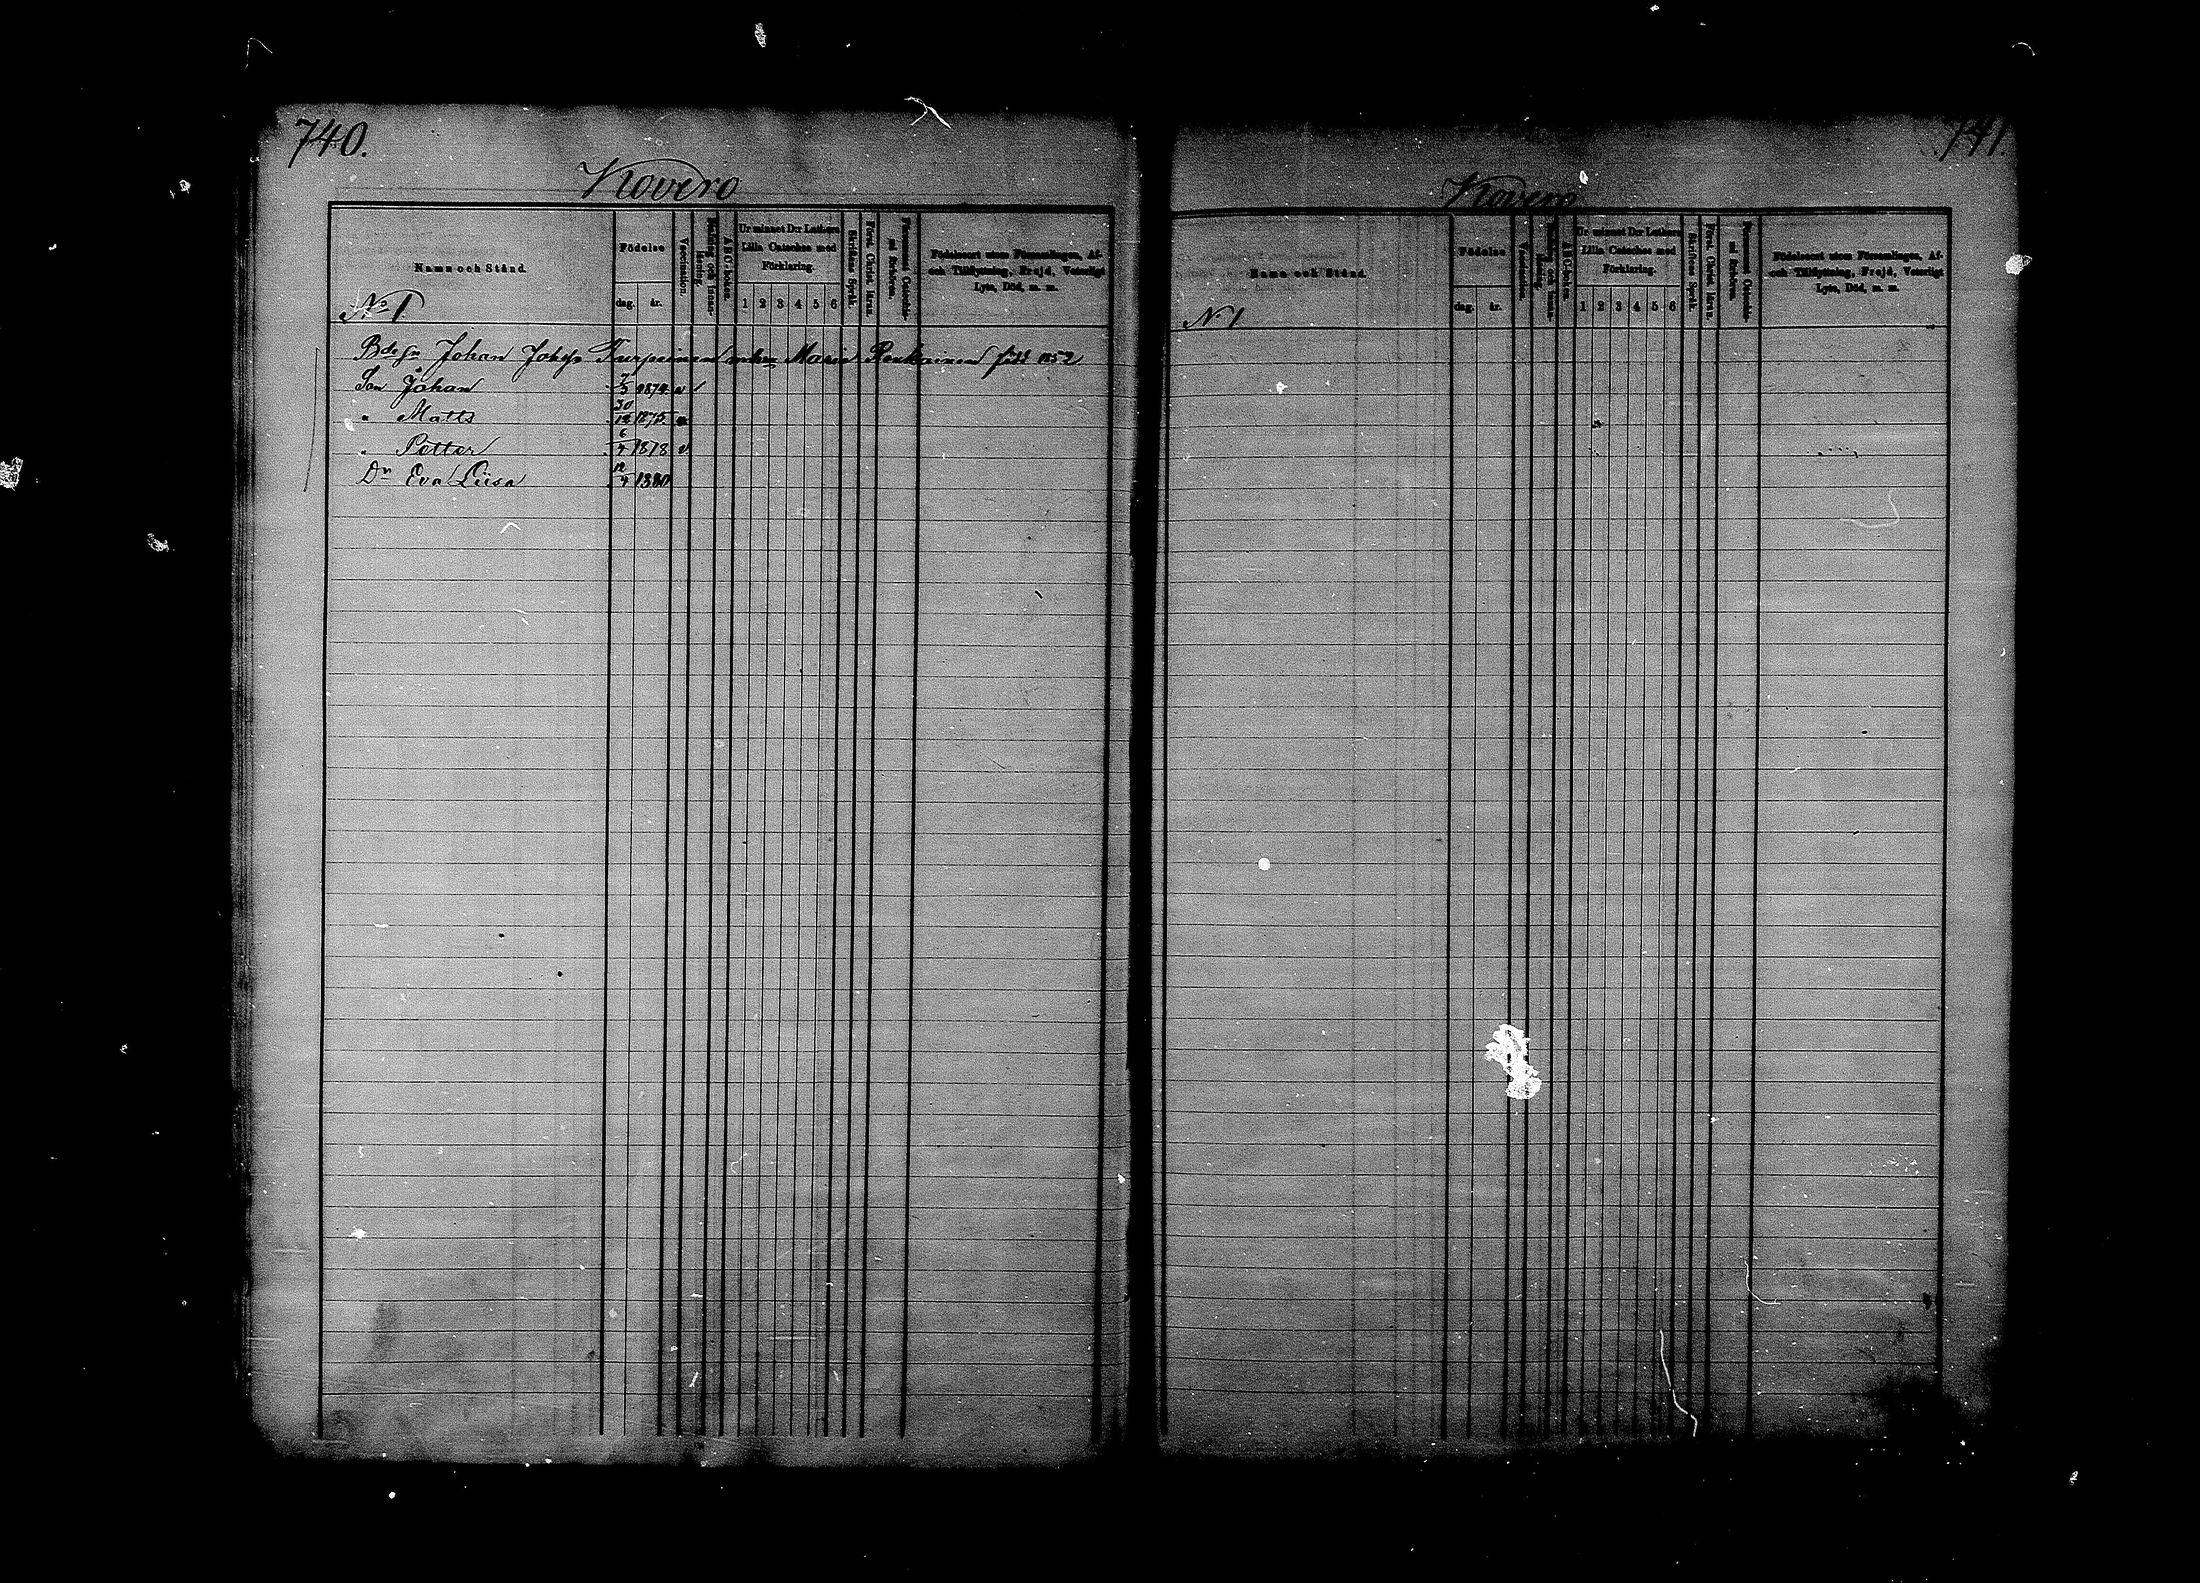 740.
Kovero
Namn och Stånd.
Födelse
dag. år.
Vaccination.
ABC-boken.
Ur minnet D:r Luthers
Lilla Cateches med
Förklaring.
1 2 3 4 5 6
Skriftens Språk.
Först. Christ. läran.
Födelseort utom Församlingen, Af-
och Tillflyttning, Frejd, Veterligt
Lyte, Död, m. m.
No 1
Johan Johss Turpeinen Maria 1852
Son Johan 7/5 1874 v /
" Matts 30/12 1875 v
" Petter 6/4 1878 v
Dr Eva Liisa 12/4 1880
741.
Kovero
Namn och Stånd.
Födelse
dag. år.
Vaccination.
ABC-boken.
Ur minnet D:r Luthers
Lilla Cateches med
Förklaring.
1 2 3 4 5 6
Skriftens Språk.
Först. Christ. läran.
Födelseort utom Församlingen, Af-
och Tillflyttning, Frejd, Veterligt
Lyte, Död, m. m.
N 1